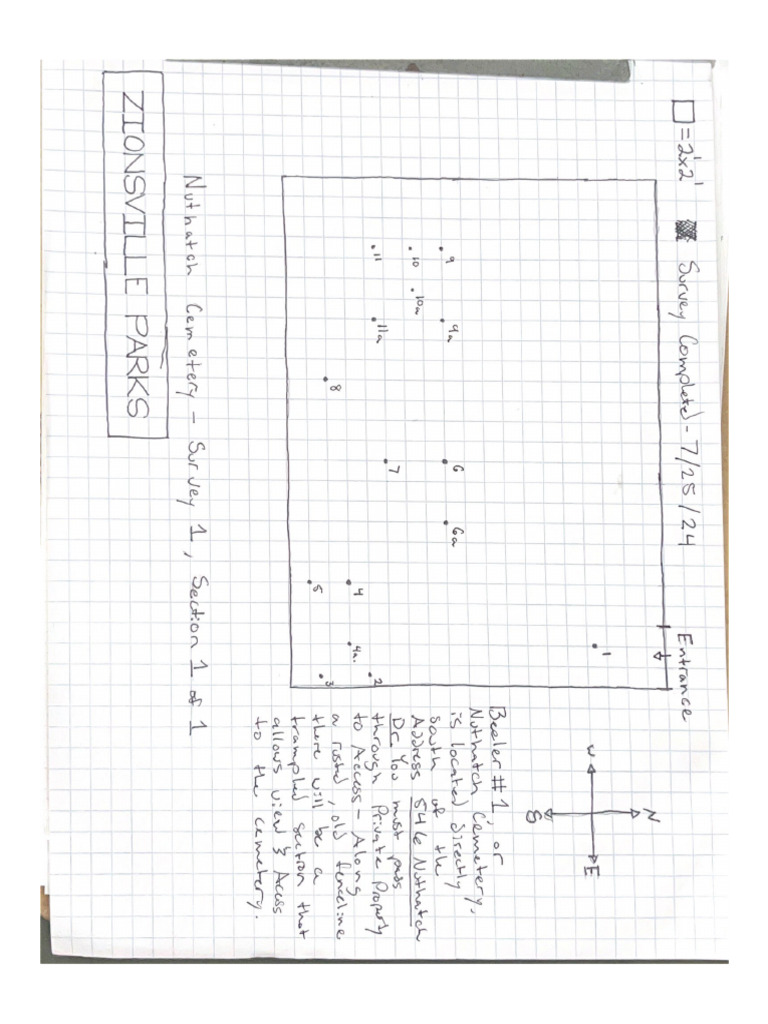 □ = 2'x2' Survey Completed - 7/25/24 Entrance
N
W
E
S
1
9
9a
6
6a
10
10a
11
11a
7
8
4
4a.
2
5
3
Beeler #1, or
Nuthatch Cemetery,
is located directly
south of the
Address 546 Nuthatch
Dr. You must pass
through Private Property
to Access - Along
a rusted, old fenceline
there will be a
trampled section that
allows view & Access
to the cemetery.
Nuthatch Cemetery - Survey 1, Section 1 of 1
ZIONSVILLE PARKS